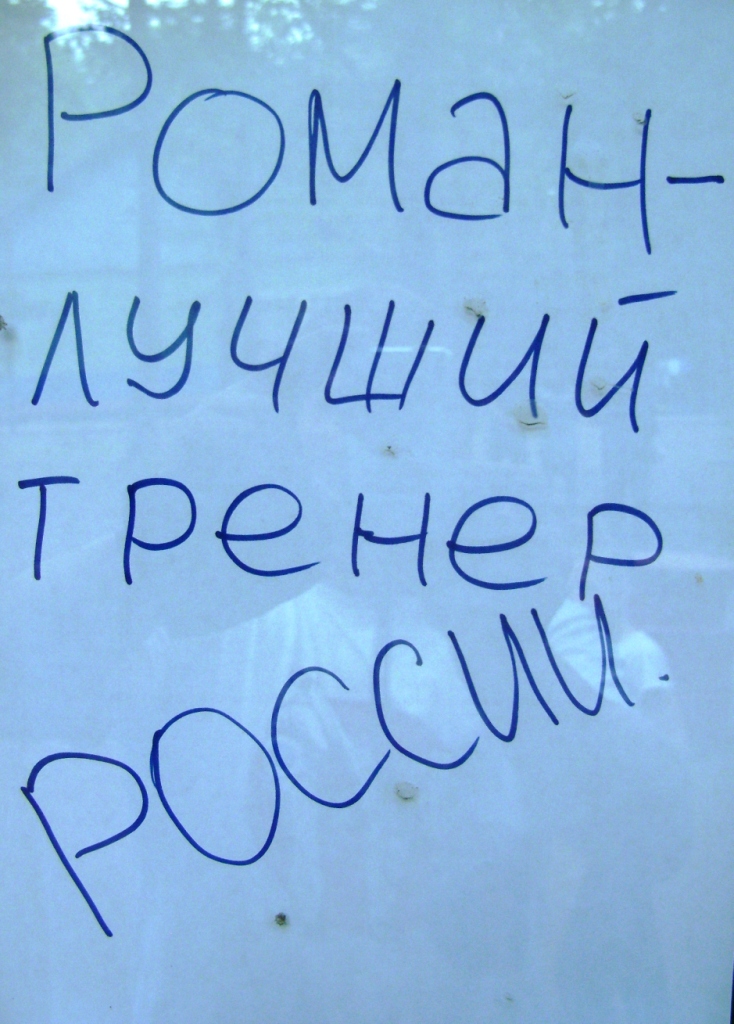 Роман-
лучший
тренер
России.